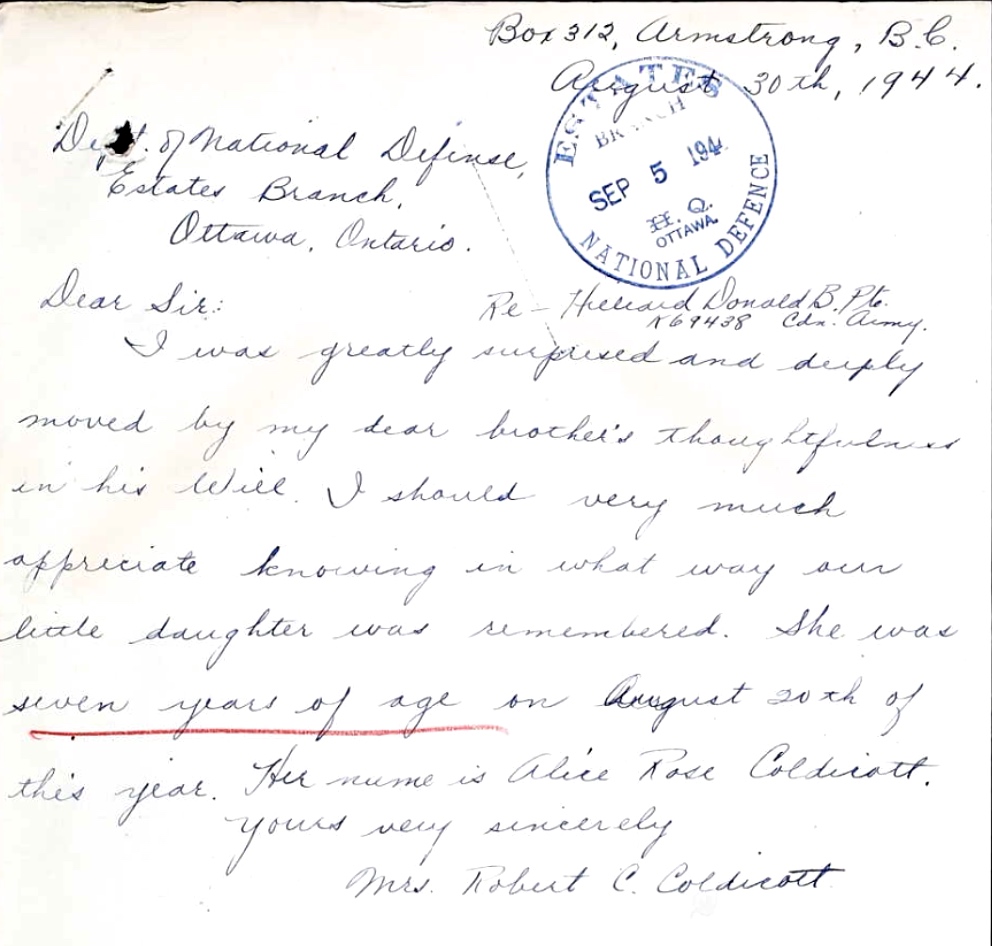 Box 312, Armstrong, B.C.
August 30th, 1944.
ESTATES
BRANCH
SEP 5 194
H. Q.
OTTAWA
NATIONAL DEFENCE
Dept. of National Defense,
Estates Branch,
Ottawa, Ontario.
Dear Sir:
Re – Hilliard Donald B. Pte.
K69438 Cdn. Army.
I was greatly surprised and deeply
moved by my dear brother's thoughtfulness
in his Will. I should very much
appreciate knowing in what way our
little daughter was remembered. She was
seven years of age on August 20th of
this year. Her name is Alice Rose Coldicott.
Yours very sincerely
Mrs. Robert C. Coldicott